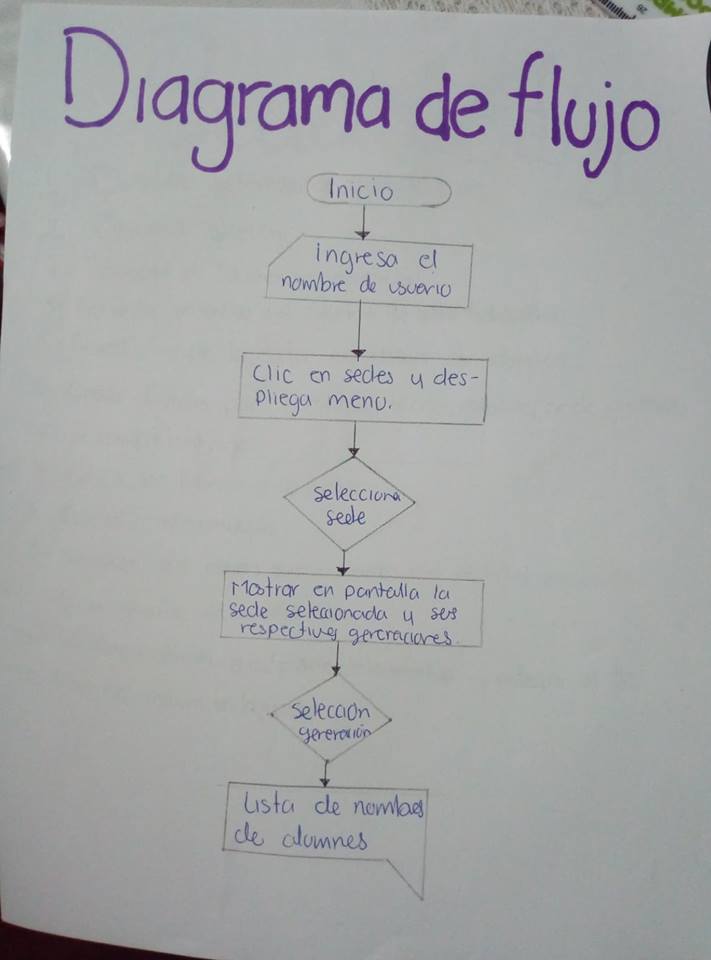 Diagrama de flujo
Inicio
ingresa el
nombre de usuario
Clic en sedes y des-
pliega menu.
selecciona
sede
Mostrar en pantalla la
sede seleccionada y sus
respectivas generaciones.
selección
generación
Lista de nombres
de alumnos